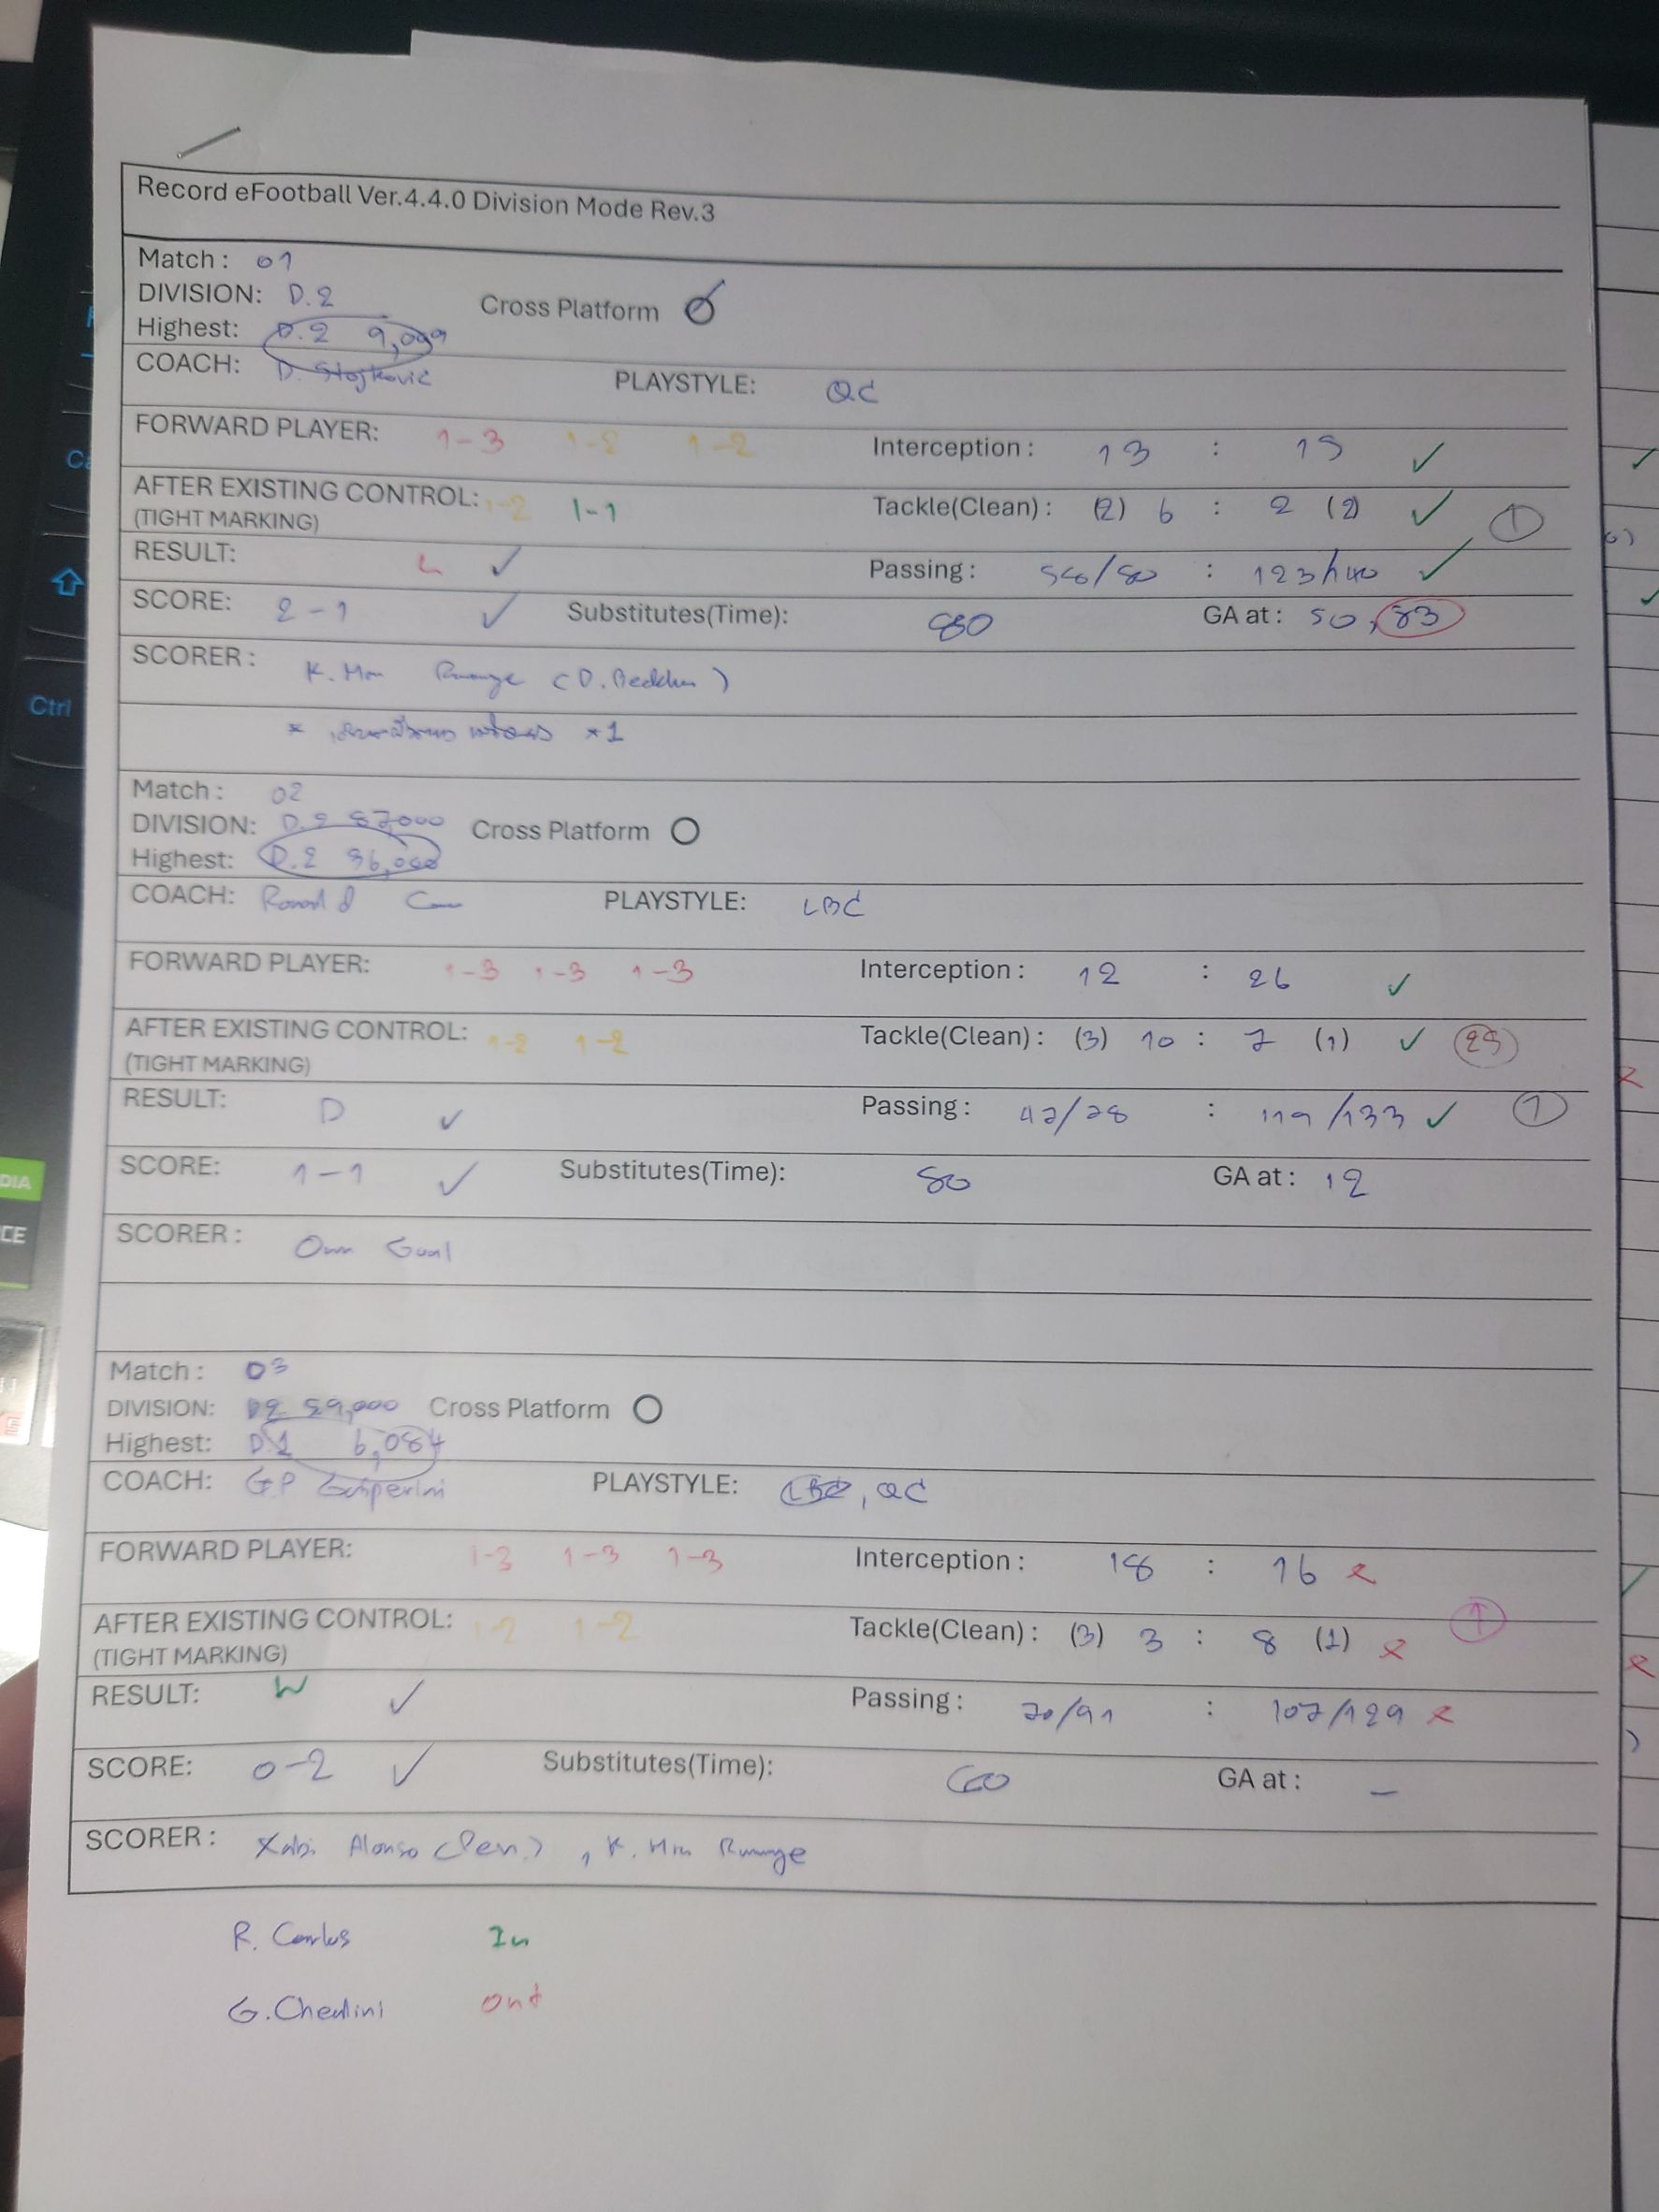 Record eFootball Ver.4.4.0 Division Mode Rev.3
Match : 01
DIVISION: D.2 Cross Platform
Highest: D.2 9,099
COACH: D. Stojkovic PLAYSTYLE: QC
FORWARD PLAYER: 1-3 1-2 Interception : 13 : 15 ✓
AFTER EXISTING CONTROL: 1-2 1-1 Tackle(Clean) : (2) 6 : 2 (2) ✓
(TIGHT MARKING)
RESULT: L ✓ Passing : : 123/140 ✓
SCORE: 2-1 ✓ Substitutes(Time): GA at : 50, 83
SCORER :
* ×1
Match : 02
DIVISION: D.2 87,000 Cross Platform
Highest: D.2 86,000
COACH: PLAYSTYLE: LBC
FORWARD PLAYER: 1-3 1-3 1-3 Interception : 12 : 26 ✓
AFTER EXISTING CONTROL: 1-2 1-2 Tackle(Clean) : (3) 10 : 7 (1) ✓
(TIGHT MARKING)
RESULT: D ✓ Passing : : 119/133 ✓
SCORE: 1-1 ✓ Substitutes(Time): 80 GA at : 12
SCORER : Own Goal
Match : 03
DIVISION: D2 89,000 Cross Platform
Highest: D.1 6,084
COACH: G.P Gasperini PLAYSTYLE: LBC, QC
FORWARD PLAYER: 1-3 1-3 1-3 Interception : 18 : 16 x
AFTER EXISTING CONTROL: 1-2 1-2 Tackle(Clean) : (3) 3 : 8 (1) x
(TIGHT MARKING)
RESULT: W ✓ Passing : 70/91 : 107/129 x
SCORE: 0-2 ✓ Substitutes(Time): 60 GA at : –
SCORER : Xabi Alonso (Pen.),
R. Carlos In
G. Chellini Out
Ctrl